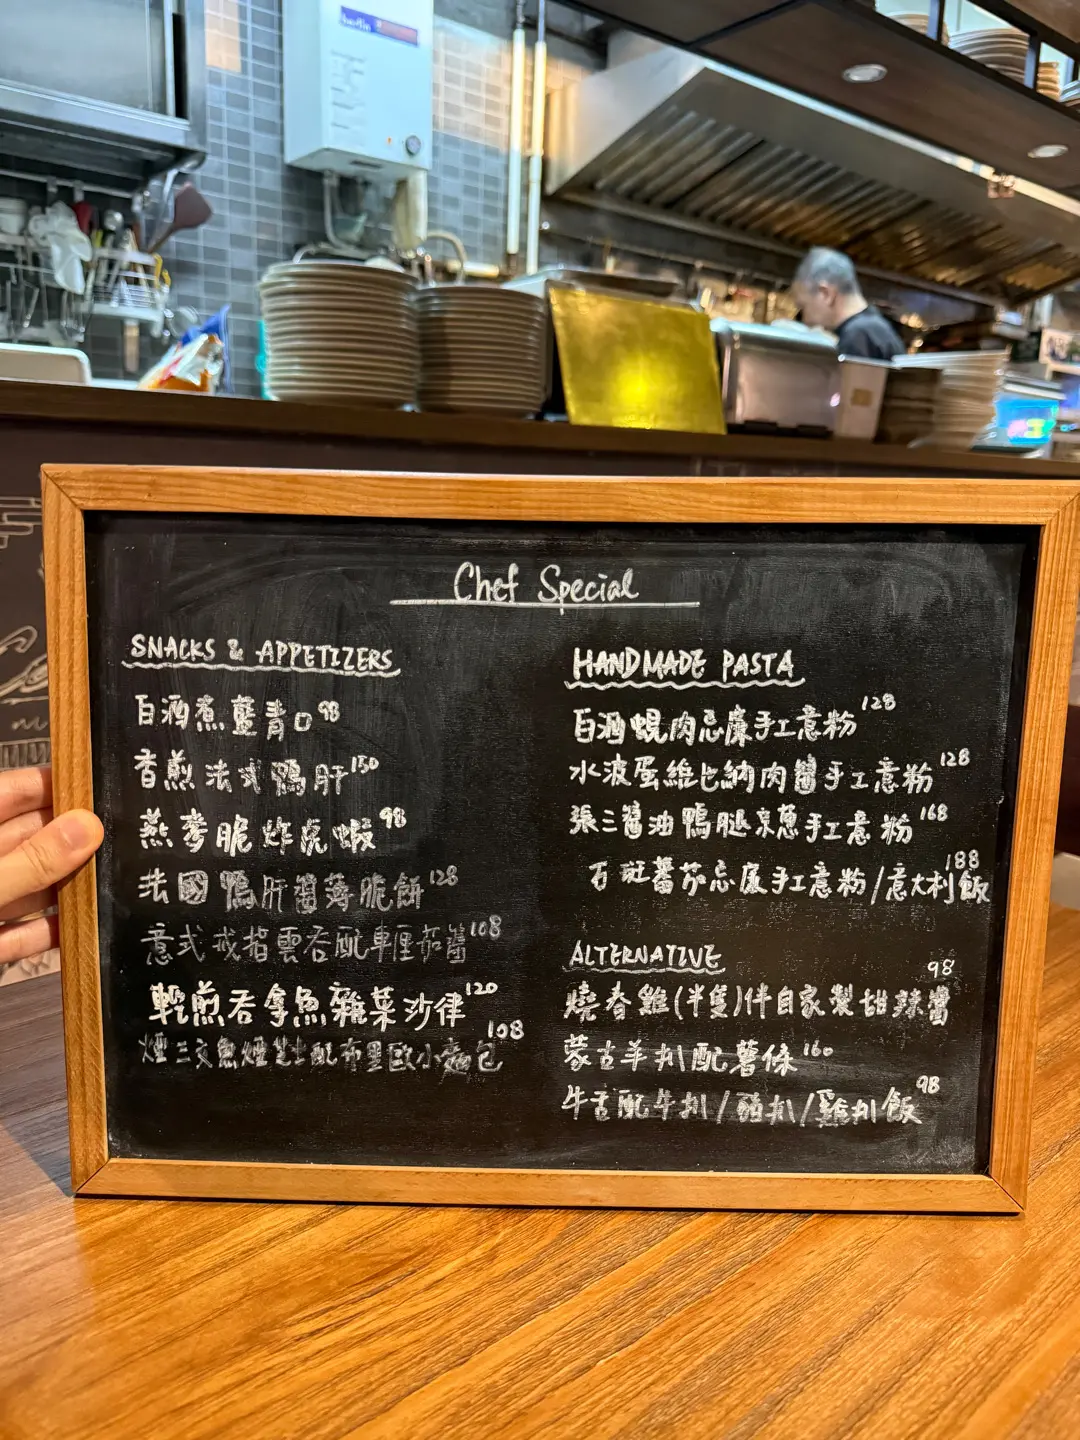 Chef Special
SNACKS & APPETIZERS
白酒煮藍青口 98
香煎法式鴨肝 150
燕麥脆炸虎蝦 98
法國鴨肝醬薄脆餅 128
意式戒指雲吞配車厘茄醬 108
軟煎吞拿魚雜菜沙律 120
煙三文魚煙芝士配布里歐小麵包 108
HANDMADE PASTA
白酒蜆肉忌廉手工意粉 128
水波蛋維也納肉醬手工意粉 128
張三醬油鴨腿京蔥手工意粉 168
石斑蕃茄忌廉手工意粉/意大利飯 188
ALTERNATIVE
燒春雞(半隻)伴自家製甜辣醬 98
蒙古羊扒配薯條 160
牛舌配牛扒/豬扒/雞扒飯 98